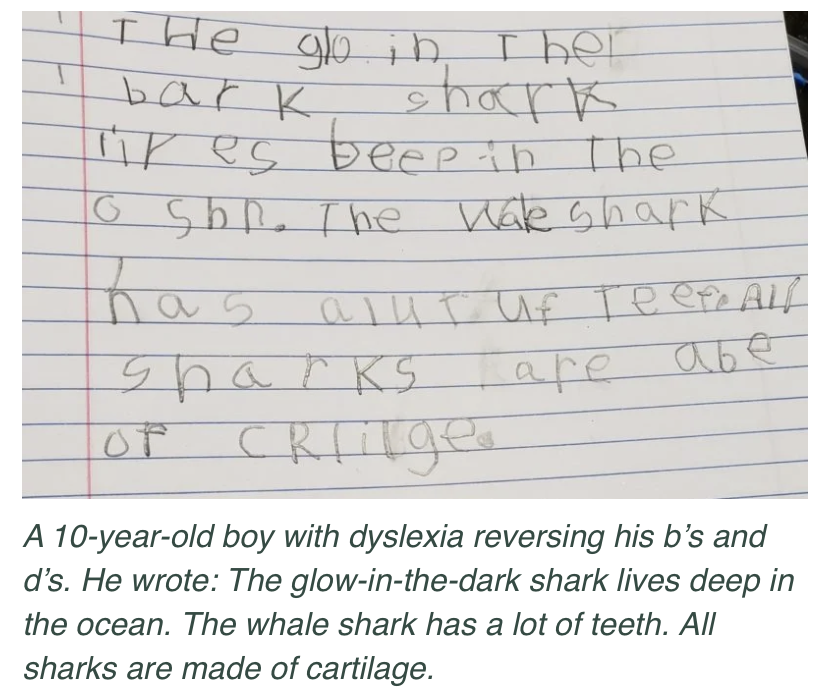 THe glo in The
bark shark
lives beep in The
o shn. The wale shark
has alut uf Teef. All
sharks are abe
of CRlilge.
A 10-year-old boy with dyslexia reversing his b’s and
d’s. He wrote: The glow-in-the-dark shark lives deep in
the ocean. The whale shark has a lot of teeth. All
sharks are made of cartilage.